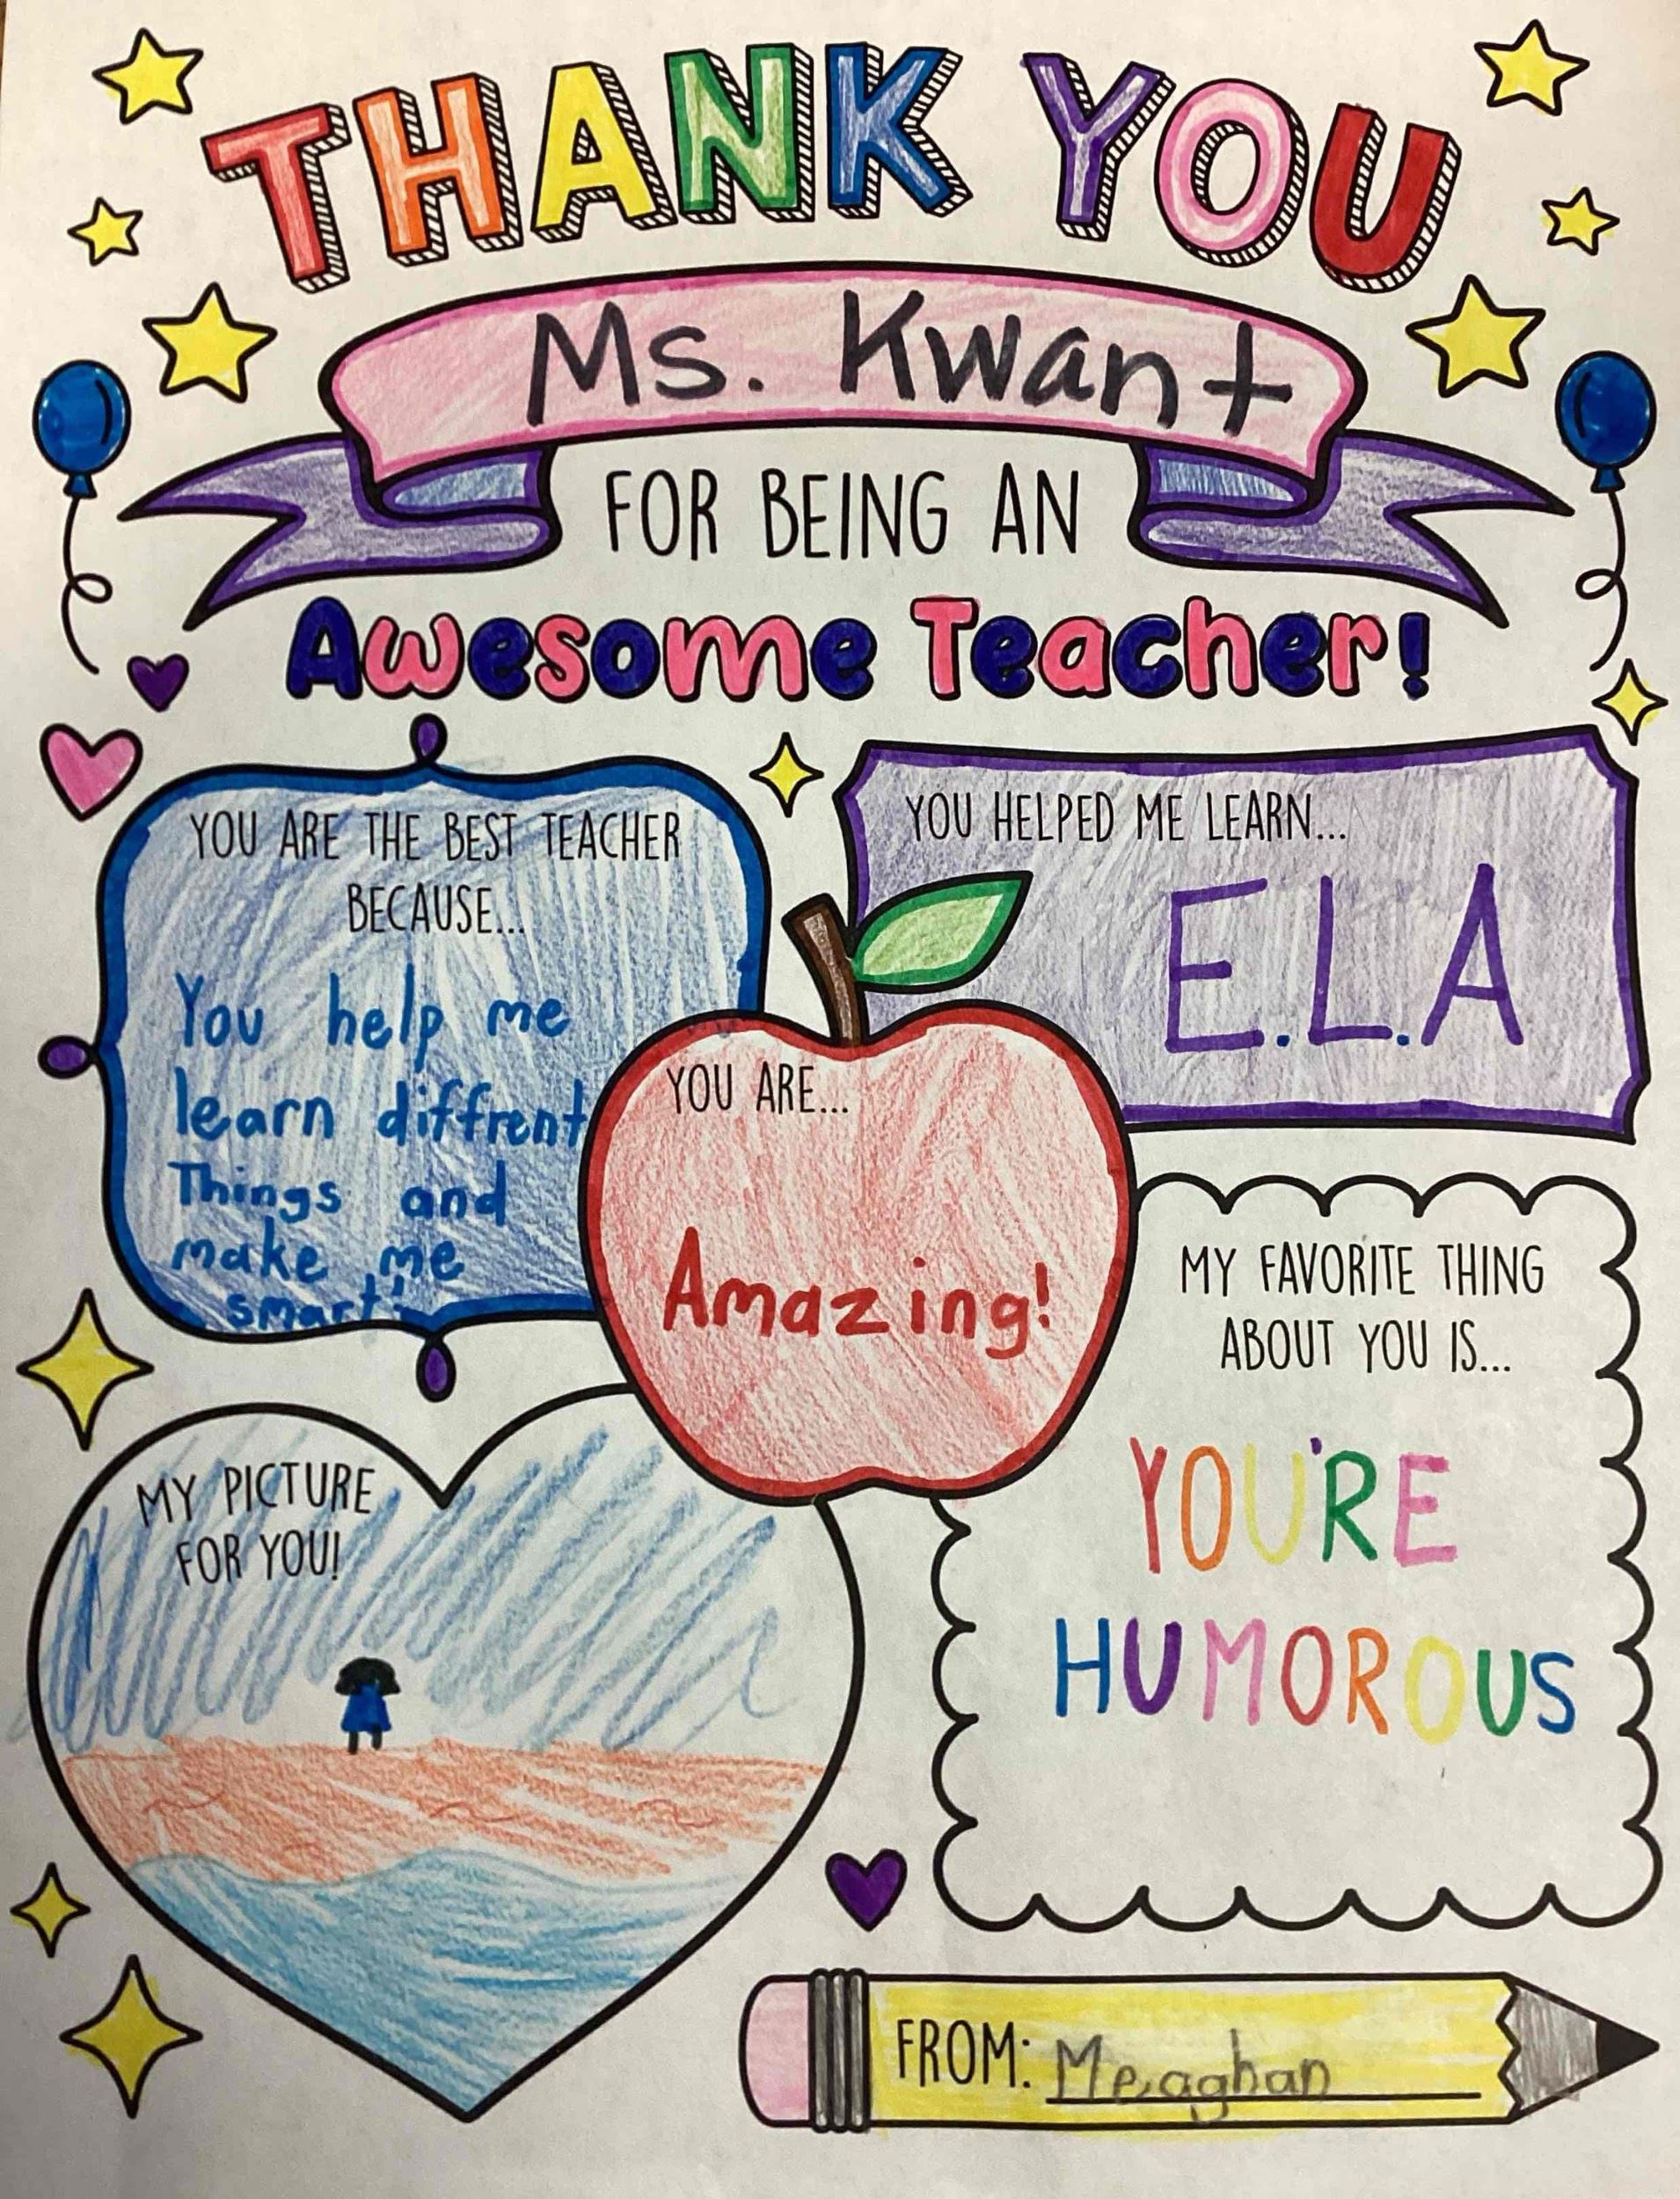 THANK YOU
Ms. Kwant
FOR BEING AN
Awesome Teacher!
YOU ARE THE BEST TEACHER
BECAUSE...
You help me
learn diffrent
Things and
make me
smart!
YOU HELPED ME LEARN...
E.L.A
YOU ARE...
Amazing!
MY FAVORITE THING
ABOUT YOU IS...
YOU'RE
HUMOROUS
MY PICTURE
FOR YOU!
FROM: Meaghan